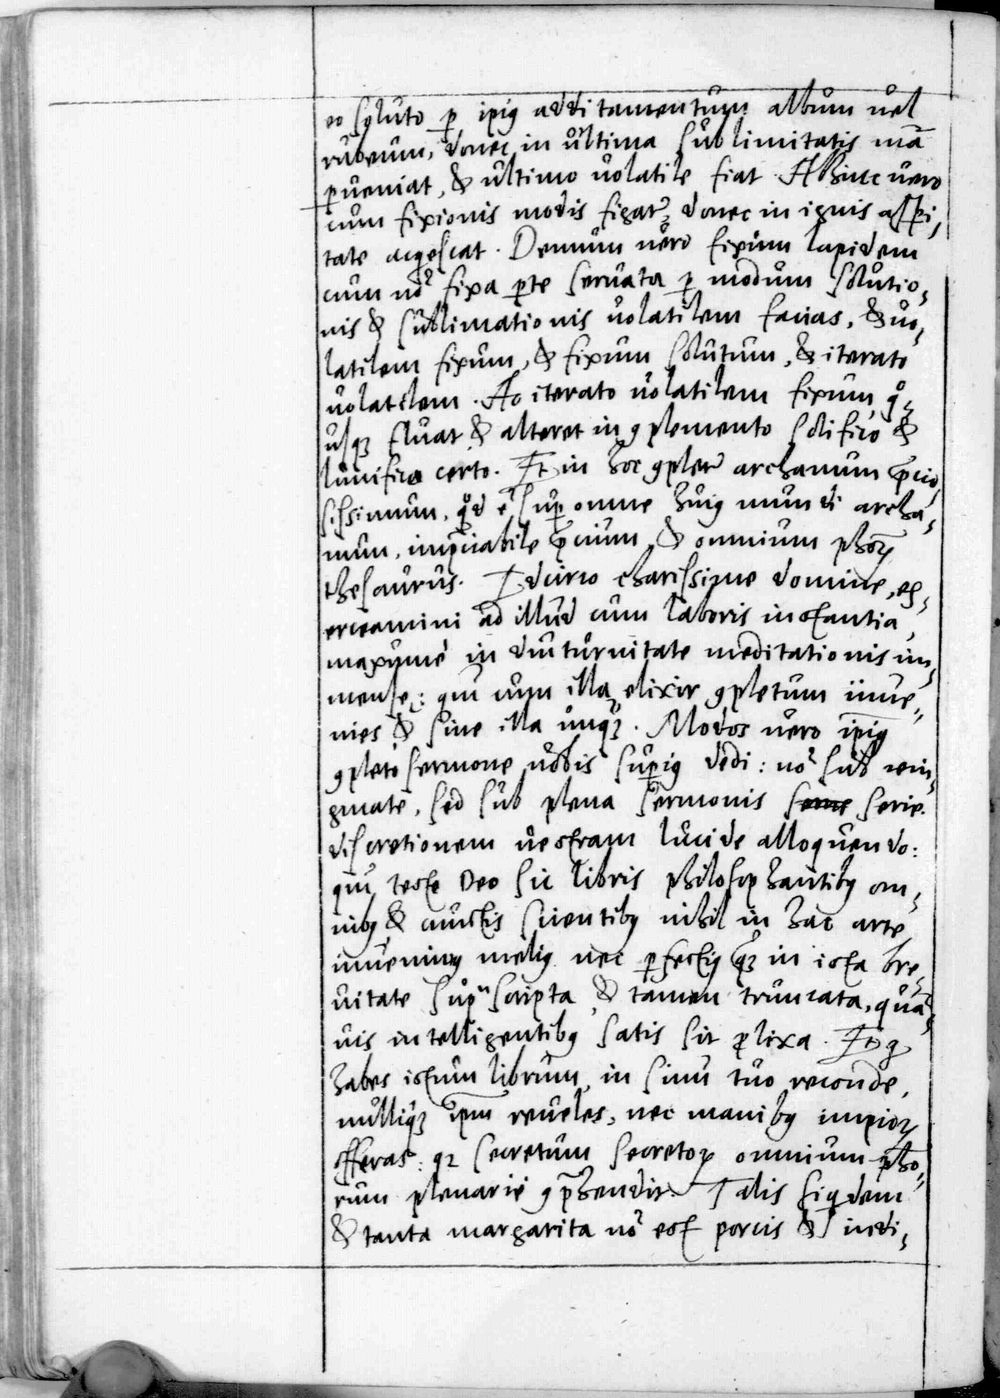 eo soluto ꝑ ipiꝰ additamentum album uel
rubeum, donec in ultima sublimitatis mã
ꝑueniat, & ultimo uolatile fiat. Abhinc uero
cum fixionis modis figatꝛ, donec in ignis aspi,
tate acq̃escat. Demum uero fixum lapidem
cum nõ fixa ꝑte seruata ꝑ modum solutio,
nis & sublimationis uolatilem facias, & uo,
latilem fixum, & fixum solutum, & iterato
uolatilem. Ac iterato uolatilem fixum, qͦ,
usqꝫ fluat & alteret in ꝯplemento solifico &
lunifico certo. Et in hoc ꝯpletꝛ archanum p̃cio,
sissimum, qd̃ ẽ suꝑ omne huiꝰ mundi archa,
num, imp̃ciabile p̃cium, & omnium phoꝝ
thesaurus. Idcirco charissime domine, ex,
erceamini ad illud cum laboris instantia,
maxymè in diuturnitate meditationis im,
mensę: qm̃ cum illa elixir ꝯpletum inue,
nies & sine illa unqꝫ. Modos uero ip̃iꝰ
ꝯpleto sermone uobis suꝑiꝰ dedi: nõ sub enin,
gmate, sed sub plena sermonis serie.
discretionem uestram lucide alloquendo:
qm̃, teste Deo sic libris philosophantibꝰ om,
nibꝰ & cunctis scientibꝰ nihil in hac arte
inuenimꝰ meliꝰ nec ꝑfectiꝰ qꝫ̃ in ista bre,
uitate supͣscripta, & tamen truncata, quã,
uis intelligentibꝰ satis sit ꝓlixa. Et q
habes istum librum, in sinu tuo reconde,
nulliqꝫ ip̃m reueles, nec manibꝰ impioꝝ
offeras: qꝛ secretum secretoꝝ omnium pho,
rum plenariè ꝯp̃hendit. Talis siqdem
& tanta margarita nõ est porcis & indi,